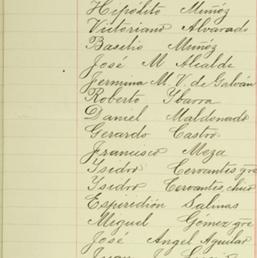 Hipólito Muñóz
Victoriano Alvarado
Basilio Muñóz
José M Alcalde
Jermina M. V. de Galván
Roberto Ybarra
Daniel Maldonado
Gerardo Castro
Francisco Meza
Ysidro Cervantes gre
Ysidro Cervantes chico
Esperidión Salinas
Miguel Gómez gre
José Angel Aguilar
Juan